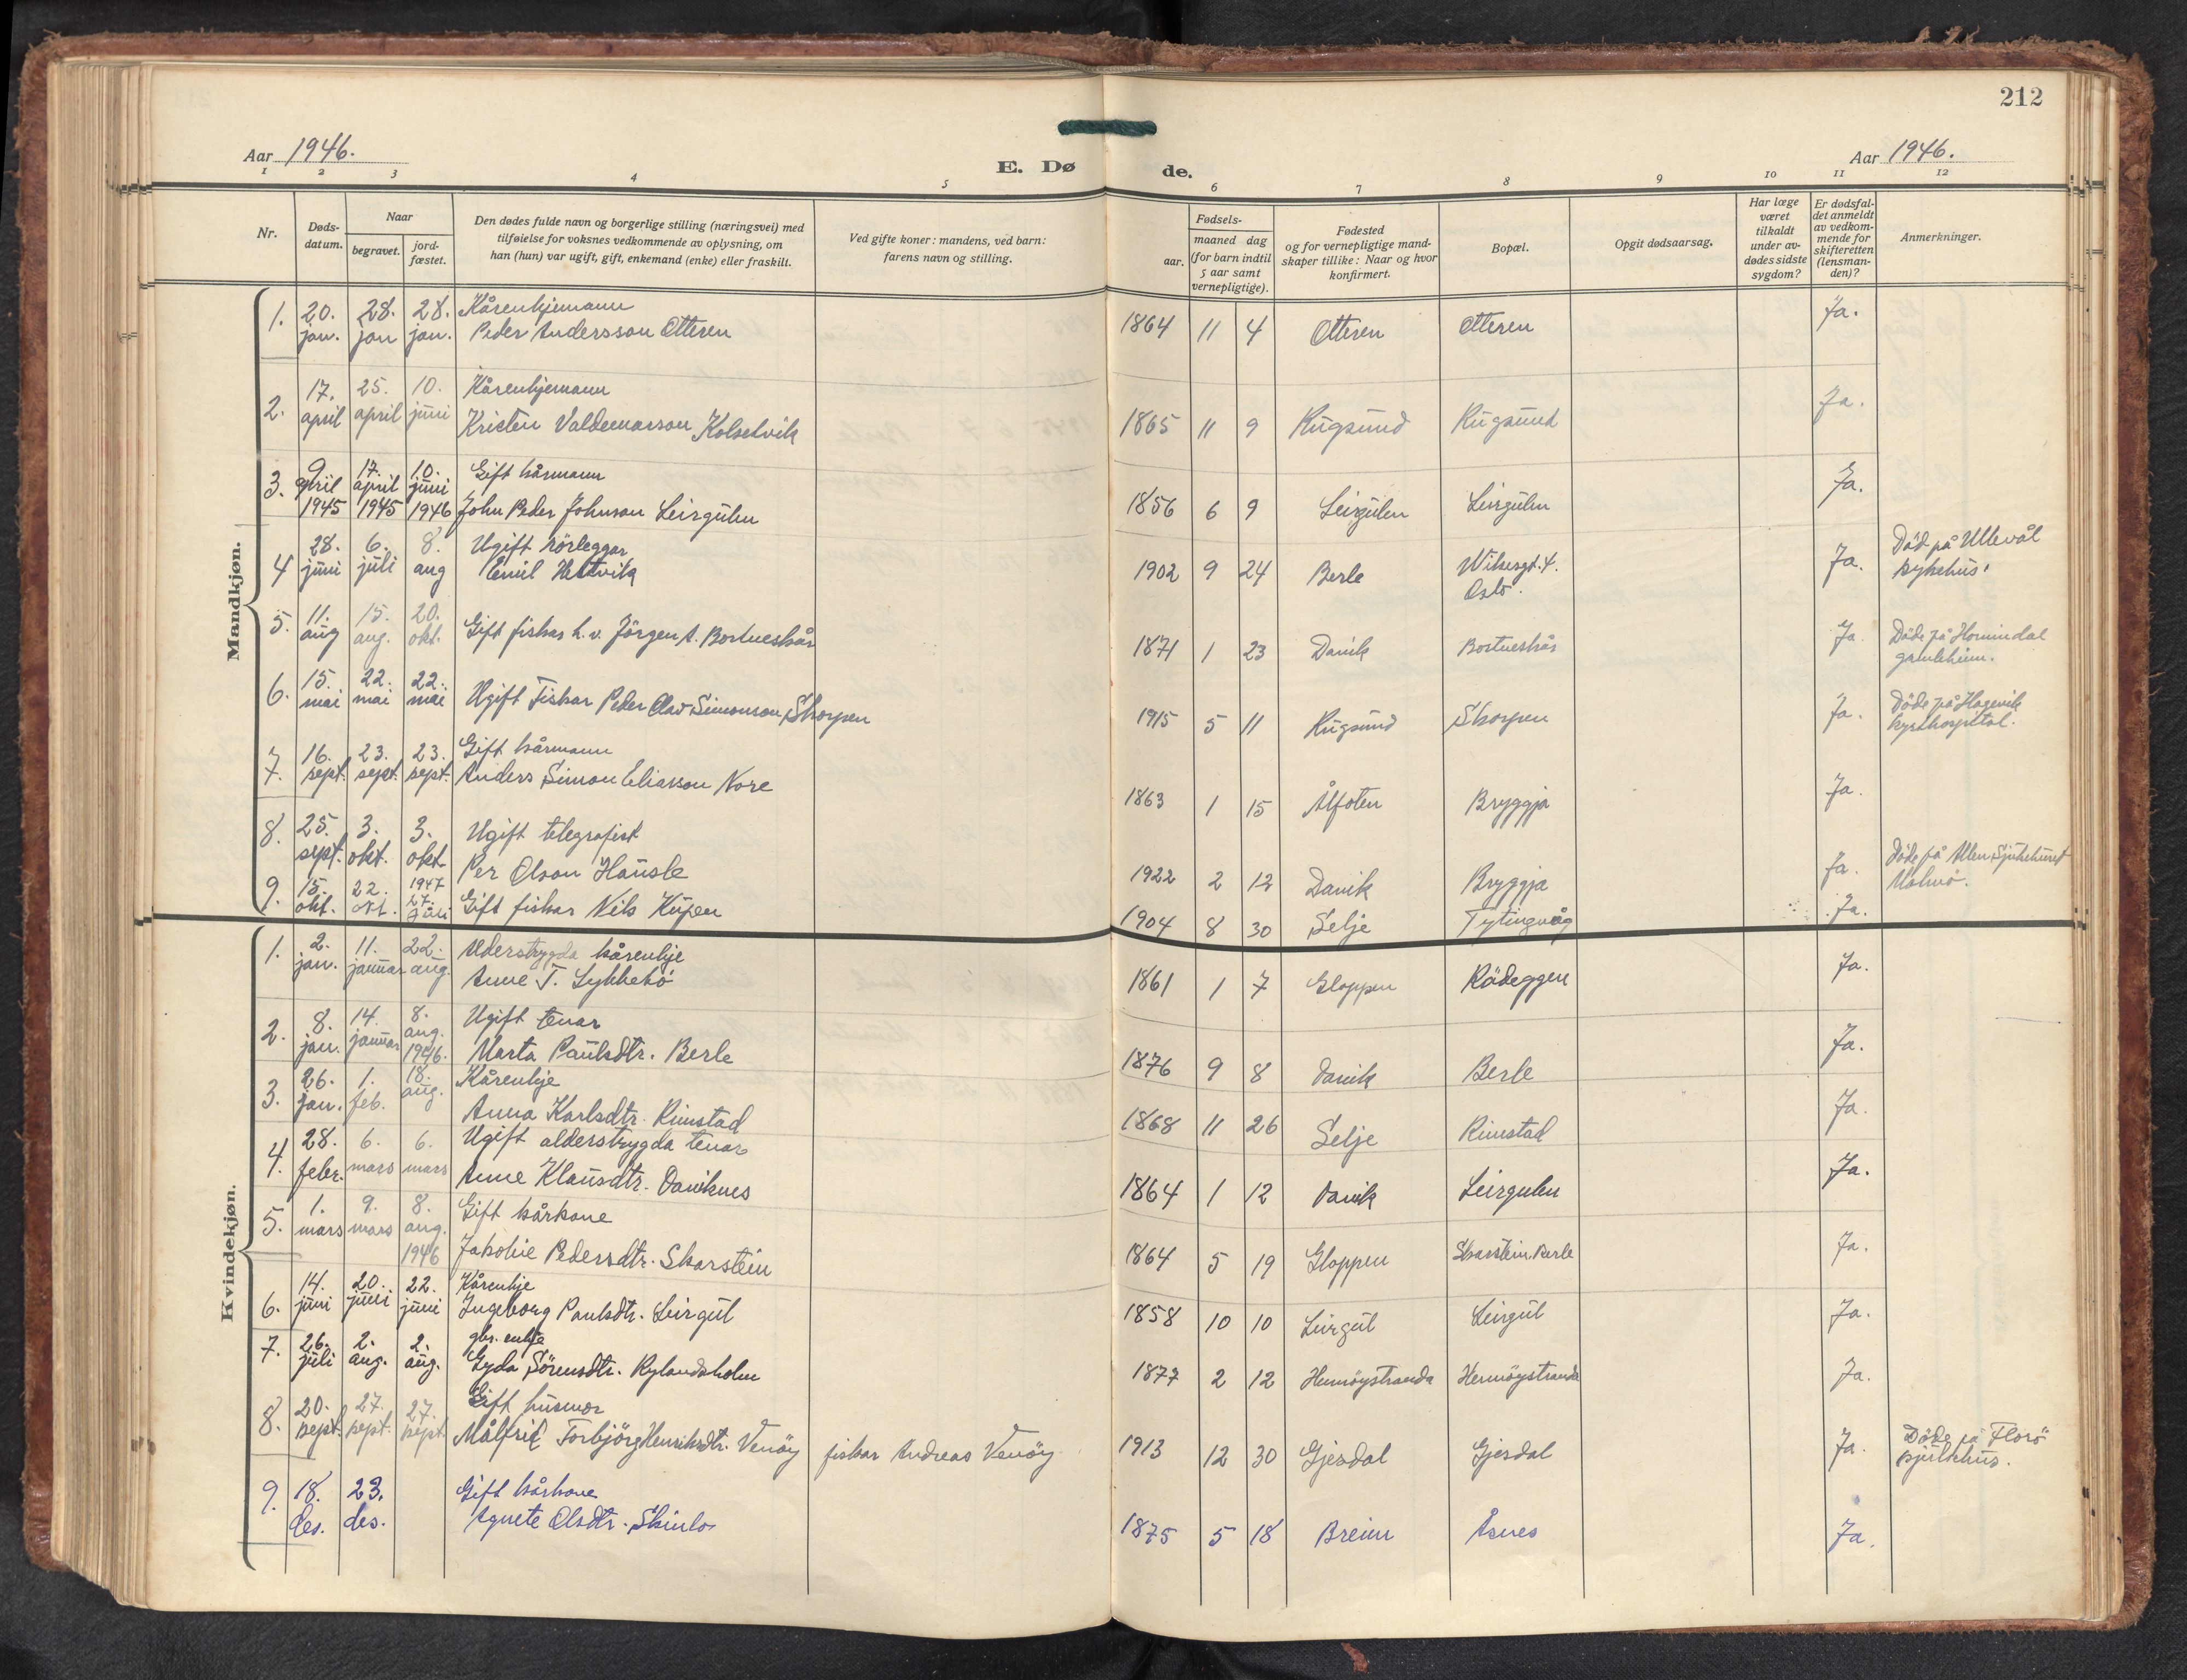 212
Aar 1946.
E. Dø de.
Aar 1946.
1 2 3 4 5 6 7 8 9 10 11 12
Nr.
Døds-
datum.
Naar
begravet.
jord-
fæstet.
Den dødes fulde navn og borgerlige stilling (næringsvei) med
tilføielse for voksnes vedkommende av oplysning, om
han (hun) var ugift, gift, enkemand (enke) eller fraskilt.
Ved gifte koner: mandens, ved barn:
farens navn og stilling.
Fødsels-
aar.
maaned dag
(for barn indtil
5 aar samt
vernepligtige).
Fødested
og for vernepligtige mand-
skaper tillike: Naar og hvor
konfirmert.
Bopæl.
Opgit dødsaarsag.
Har læge
været
tilkaldt
under av-
dødes sidste
sygdom?
Er dødsfal-
det anmeldt
av vedkom-
mende for
skifteretten
(lensman-
den)?
Anmerkninger.
Mandkjøn.
1. 20. 28. 28. Kårenkjemann
jan. jan jan. Peder Andersson Otteren 1864 11 4 Otteren Otteren Ja.
2. 17. 25. 10. Kårenkjemann
april april juni Kristen Valdemarson Kolsetvik 1865 11 9 Rugsund Rugsund Ja.
3. 9 17. 10. Gift kårmann
april april juni
1945 1945 1946 John Peder Johnson Leirgulen 1856 6 9 Leirgulen Leirgulen Ja.
4 28. 6. 8. Ugift rörleggar
juni juli aug Emil Hestvik 1902 9 24 Berle Wilsesgt. 4. Oslo. Ja. Död på Ullevål
sykehus.
5. 11. 15. 20.
aug aug. okt. Gift fiskar h.v. Jörgen A. Bortneskår 1871 1 23 Davik Bortneskår Ja Döde på Hornindal
gamleheim.
6. 15. 22. 22.
mai mai mai Ugift Fiskar Peder Olav Simonson Skorpen 1915 5 11 Rugsund Skorpen Ja. Döde på Hagevik
kysthospital.
7. 16. 23. 23. Gift kårmann
sept. sept. sept. Anders Simon Eliasson Nore 1863 1 15 Ålfoten Bryggja Ja.
8. 25. 3. 3. Ugift telegrafist
sept. okt. okt. Per Olson Hausle 1922 2 12 Davik Bryggja Ja. Döde på Sjukehuset
Malmö.
9. 15. 22. 1947 27.
okt. okt. juli Gift fiskar Nils Kupen 1904 8 30 Selje Tytingvåg Ja.
Kvindekjøn.
1. 2. 11. 22. Alderstrygda kårenkje
jan. januar aug. Anne T. Lykkebö 1861 1 7 Gloppen Rödeggen Ja.
2. 8. 14. 8. Ugift tenar
jan. januar aug. 1946. Marta Paulsdtr. Berle 1876 9 8 Davik Berle Ja.
3. 26. 1. 18. Kårenkje
jan. feb. aug. Anna Karlsdtr. Rimstad 1868 11 26 Selje Rimstad Ja.
4. 28. 6. 6. Ugift alderstrygda tenar
febr. mars mars Anne Klausdtr. Daviknes 1864 1 12 Davik Leirgulen Ja.
5. 1. 9. 8. Gift kårkone
mars mars aug. 1946 Jakobie Pedersdtr. Skarstein 1864 5 19 Gloppen Skarstein, Berle Ja.
6. 14. 20. 22. Kårenkje
juni juni juni Ingeborg Paulsdtr. Leirgul 1858 10 10 Leirgul Leirgul Ja.
7. 26. 2. 2. gbr. enkje
juli aug. aug. Gyda Sörensdtr. Rylandsholm 1877 2 12 Hennöystranda Hennöystranda Ja.
8. 20. 27. 27. Gift husmor
sept. sept. sept Målfrid Torbjörg Henriksdtr. Venöy fiskar Andreas Venöy 1913 12 30 Gjesdal Gjesdal Ja. Döde på Florö
sjukehus.
9. 18. 23. Gift kårkone
des. des. Agnete Olsdtr. Skinlo 1875 5 18 Breim Åsnes Ja.